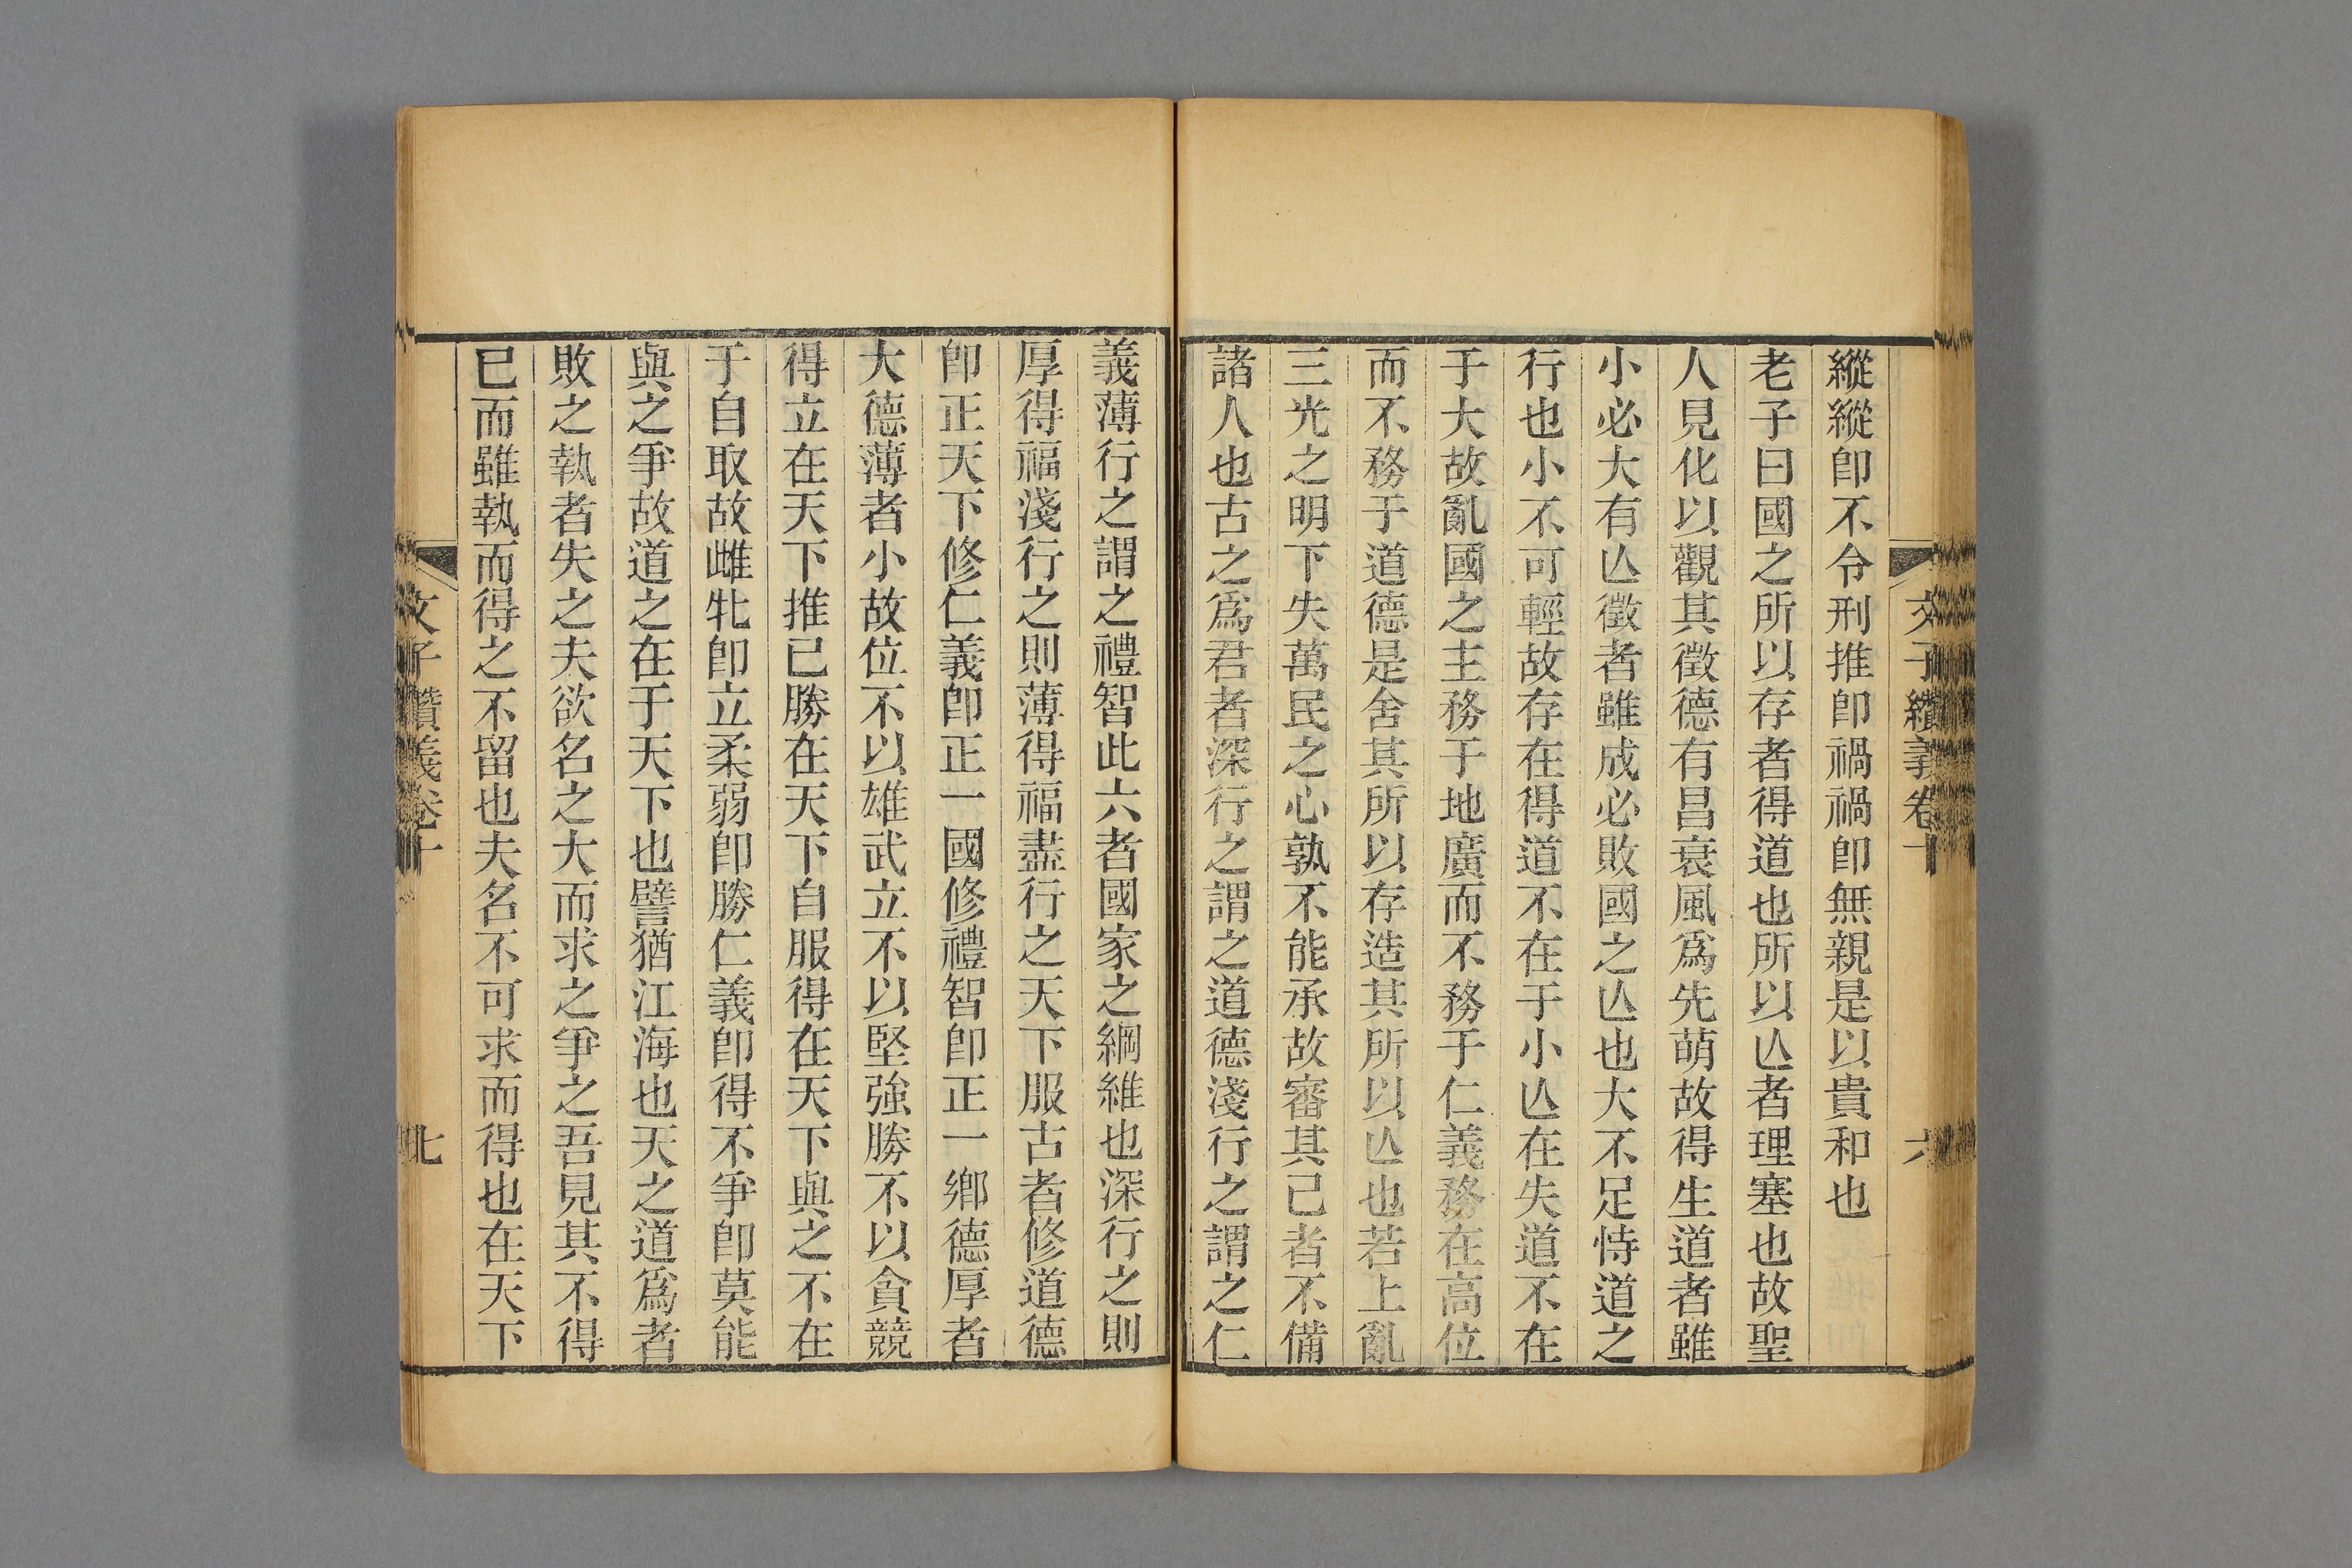 文子纘義卷十
六
縱縱卽不令刑推卽禍禍卽無親是以貴和也
老子曰國之所以存者得道也所以亾者理塞也故聖
人見化以觀其徵德有昌衰風爲先萌故得生道者雖
小必大有亾徵者雖成必敗國之亾也大不足恃道之
行也小不可輕故存在得道不在于小亾在失道不在
于大故亂國之主務于地廣而不務于仁義務在高位
而不務于道德是舍其所以存造其所以亾也若上亂
三光之明下失萬民之心孰不能承故審其己者不備
諸人也古之爲君者深行之謂之道德淺行之謂之仁
義薄行之謂之禮智此六者國家之綱維也深行之則
厚得福淺行之則薄得福盡行之天下服古者修道德
卽正天下修仁義卽正一國修禮智卽正一鄉德厚者
大德薄者小故位不以雄武立不以堅強勝不以貪競
得立在天下推已勝在天下自服得在天下與之不在
于自取故雌牝卽立柔弱卽勝仁義卽得不爭卽莫能
與之爭故道之在于天下也譬猶江海也天之道爲者
敗之執者失之夫欲名之大而求之爭之吾見其不得
已而雖執而得之不留也夫名不可求而得也在天下
文子纘義卷十
七